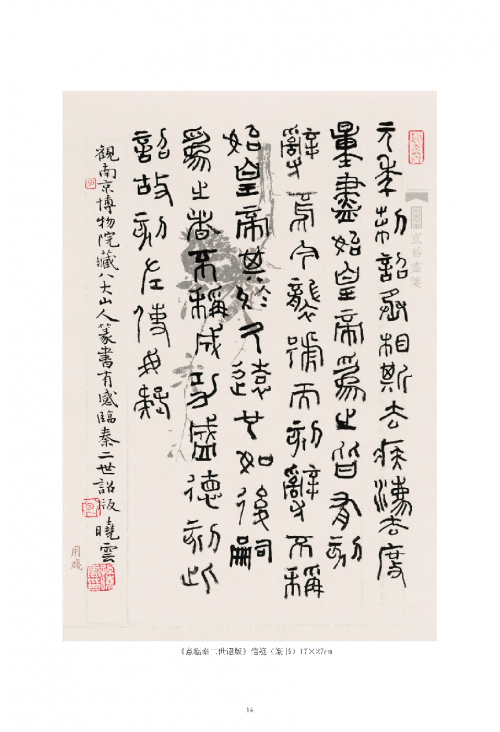 元年制詔丞相斯去疾灋度
量盡始皇帝為之皆有刻
辭焉今襲號而刻辭不稱
始皇帝其於久遠也如後嗣
為之者不稱成功盛德刻此
詔故刻左使毋疑
觀南京博物院藏八大山人篆書有感臨秦二世詔版 曉雲
用箋
《意临秦二世诏版》信笺（篆书）17×27cm
14